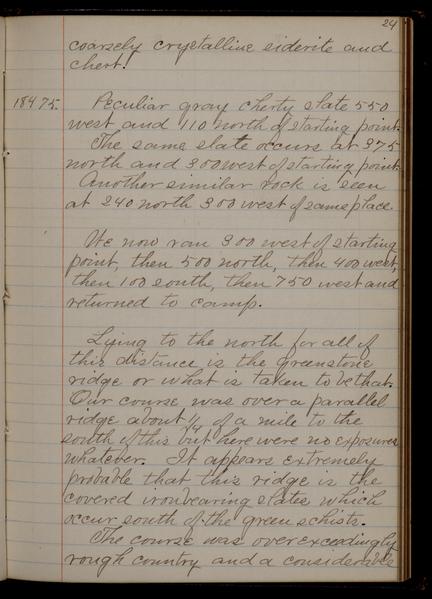 24
coarsely crystalline siderite and
chert.
18475. Peculiar gray cherty slate 550
west and 110 north of starting point.
The same slate occurs at 375
north and 300 west of starting point.
Another similar rock is seen
at 240 north 300 west of same place.
We now ran 300 west of starting
point, then 500 north, then 400 west,
then 100 south, then 750 west and
returned to camp.
Lying to the north for all of
this distance is the greenstone
ridge or what is taken to be that.
Our course was over a parallel
ridge about 1/4 of a mile to the
south of this but here were no exposures
whatever. It appears extremely
probable that this ridge is the
covered ironbearing slates which
occur south of the green schists.
The course was over exceedingly
rough country and a considerable